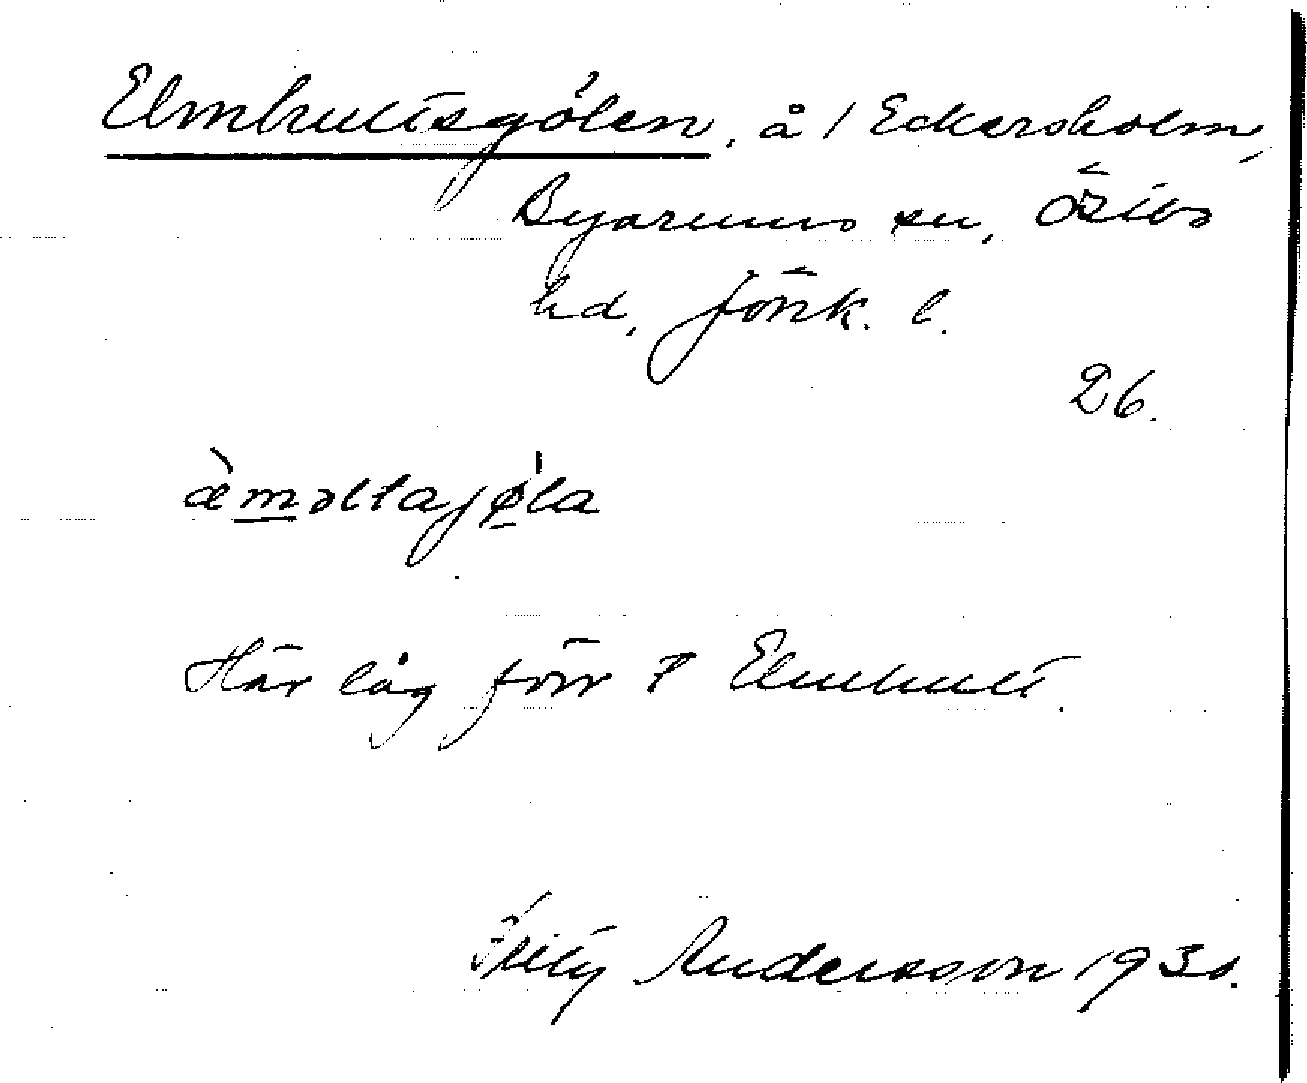 Elmhultsgölen, å / Eckersholm,
Byarums sn, Östbo
hd, Jönk. l.
26.
æ̀mɔltajø̍la
Här låg förr T Elmhult.
Andersson 1930.